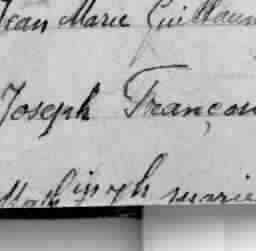 Jean Marie Guillaum
Joseph Françoi
marie